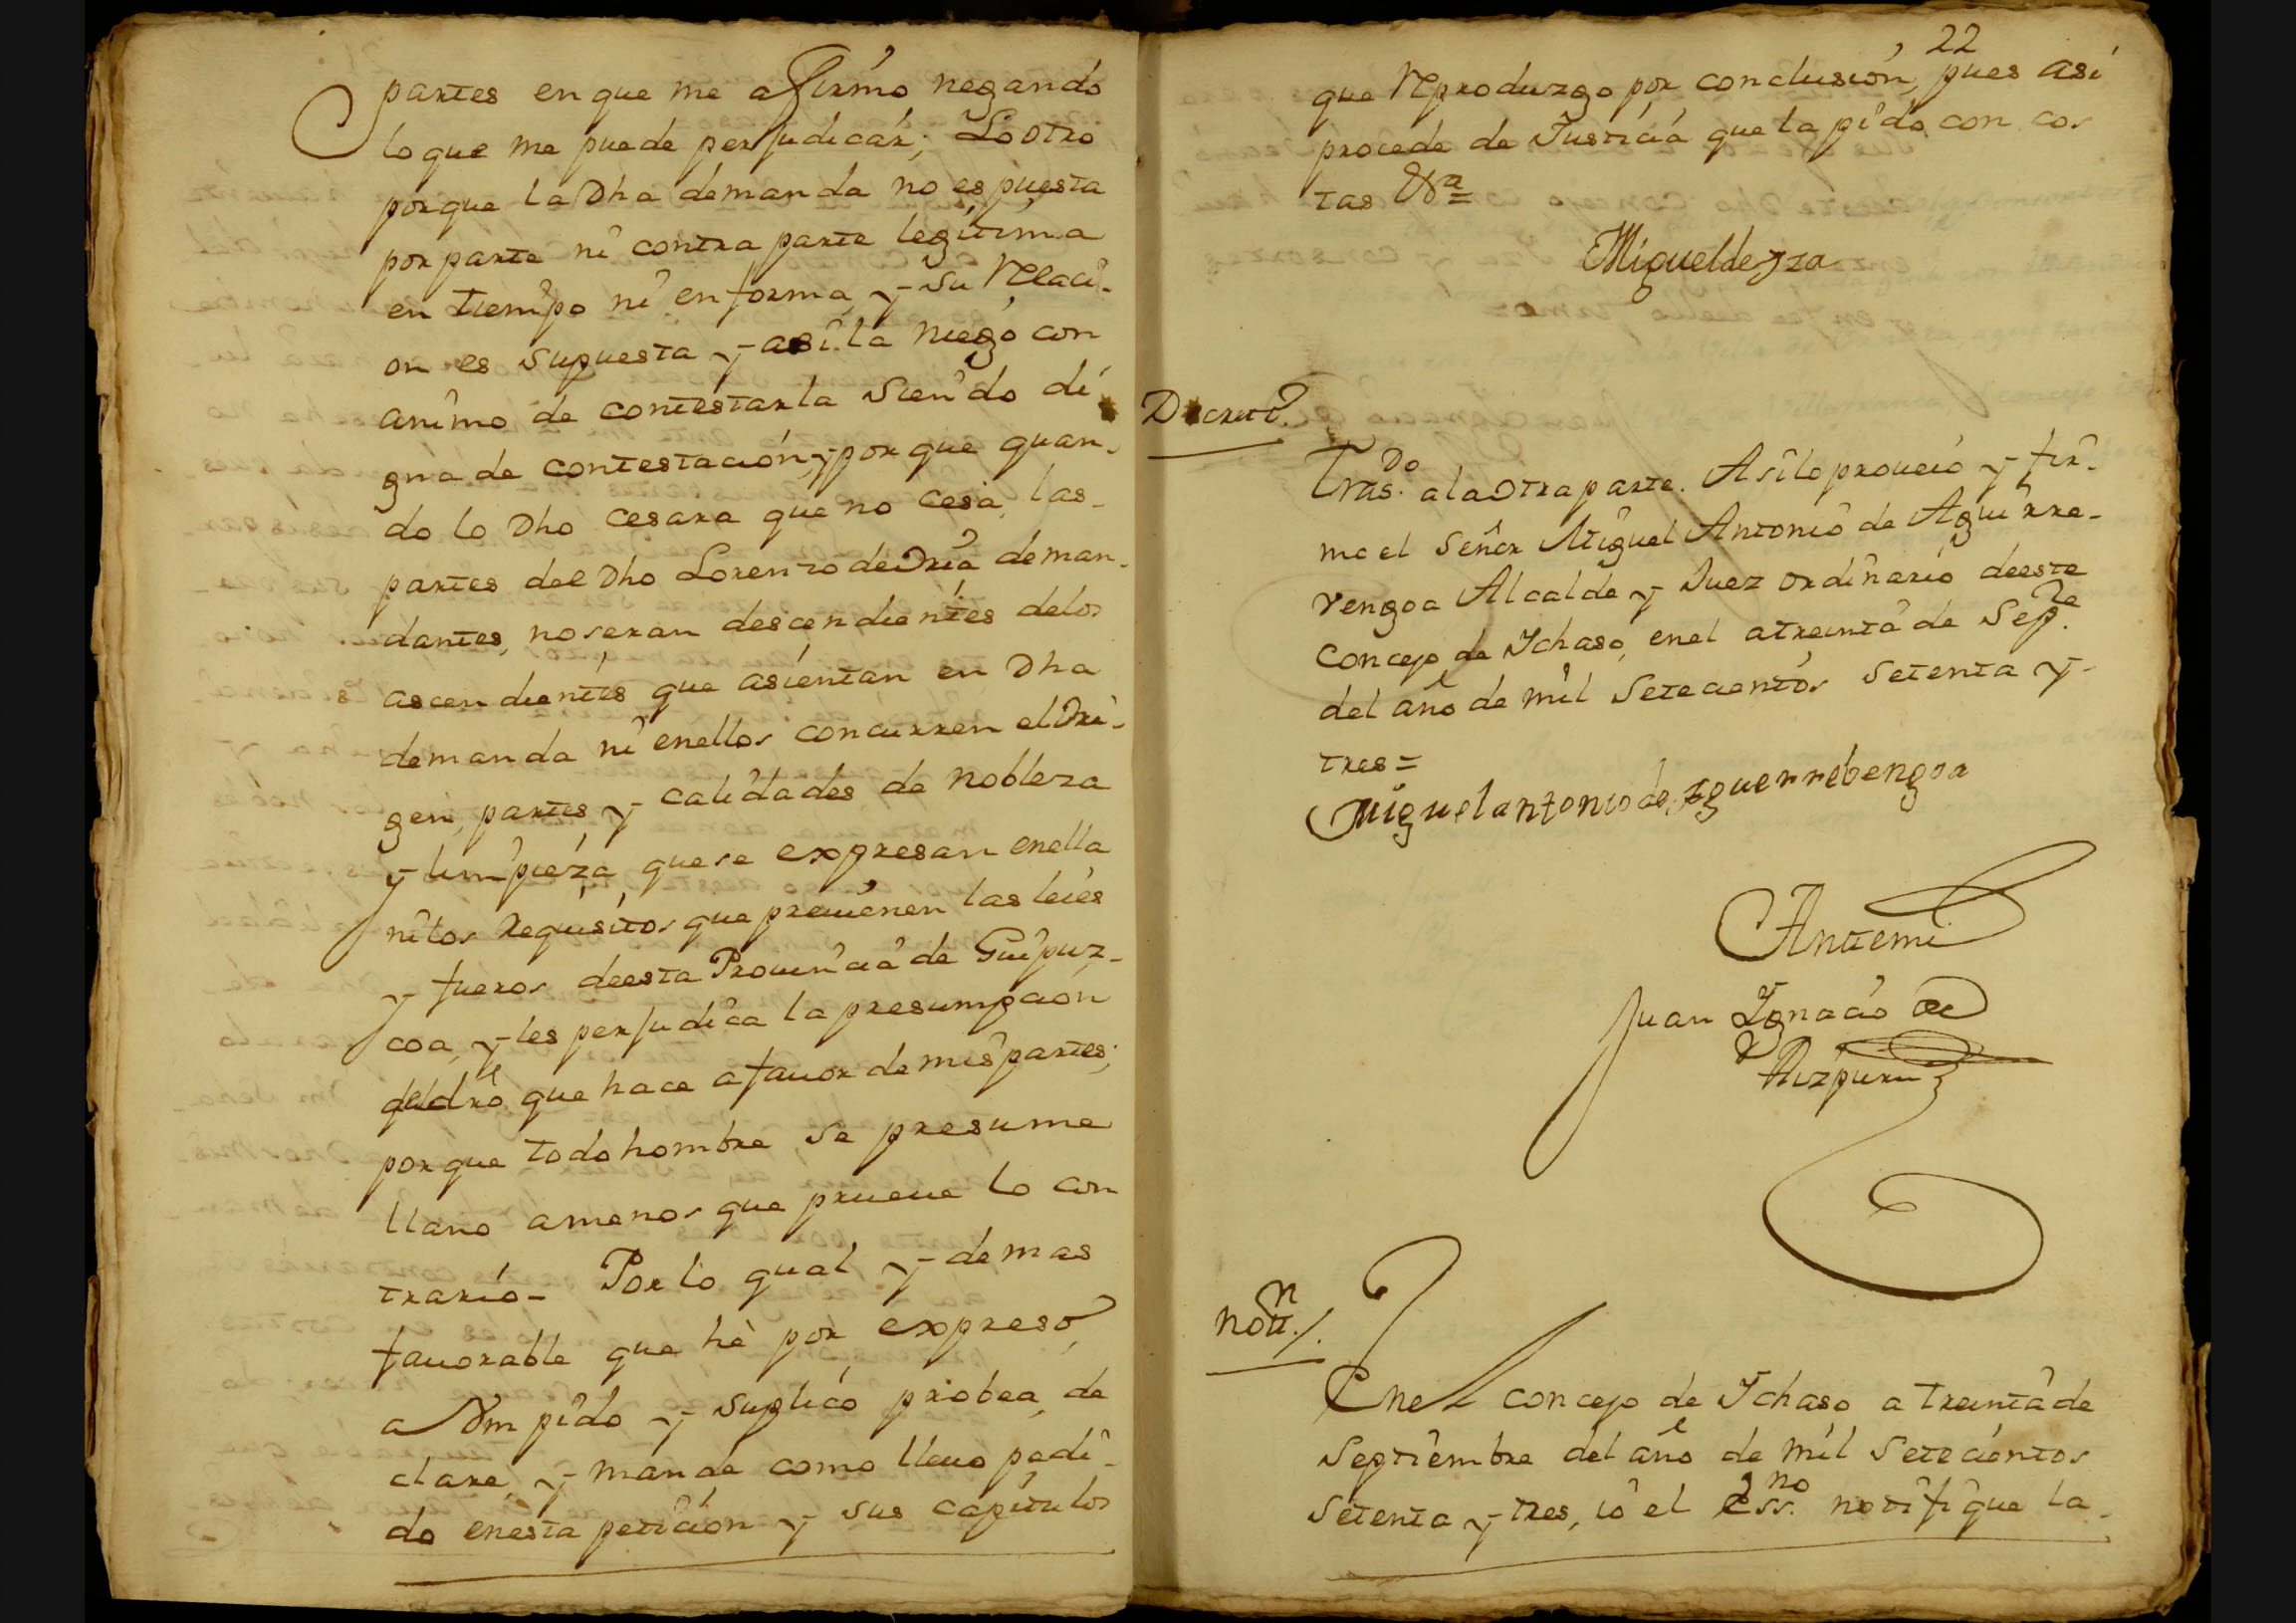 partes en que me afirmo negando
lo que me puede perjudicar; Lo otro
porque la Dha demanda no es puesta
por parte ni contra parte legitima
en tiempo ni en forma, y su relaci-
on es supuesta y asi la niego con
animo de contestarla siendo di
gna de contestación, y porque quan-
do lo Dho cesara que no cesa, las
partes del Dho Lorenzo de Oria deman-
dantes, no seran descendientes delos
ascendientes que asientan en Dha
demanda ni enellos concurren el Ori-
gen, partes y calidades de nobleza
y limpieza que se expresan enella
ni los requisitos que preuienen las leies
y fueros deesta Prouincia de Guipuz-
coa, y les perjudica la presumpcion
del dro que hace a fauor de mis partes;
porque todo hombre se presume
llano amenos que prueue lo con
trario- Por lo qual y demas
fauorable que hè por expreso,
a Vm pido y suplico probea, de
clare, y mande como lleuo pedi-
do enesta peticion y sus capitulos
22
que reproduzgo por conclusión, pues asi
procede de Justicia que la pido con cos
tas &a=
Miguel de Yza
Decreto.
Trasdo. ala otra parte. Asi lo proueió y fir-
mo el Señor Miguel Antonio de Aguirre-
vengoa Alcalde y Juez ordinario deeste
Concejo de Ichaso, enel a treinta de Sepre.
del año de mil Setecientos Setenta y
tres=
Miguel antonio de Aguerrebengoa
Antemi
Juan Ignacio de
Aizpuru
Notin./.
Enel concejo de Ichaso a treinta de
Septiembre del año de mil Setecientos
Setenta y tres, io el Essno. notifique la